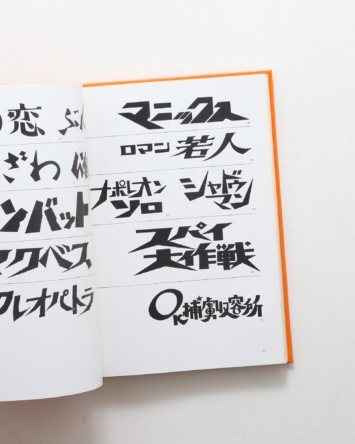 の恋 ぶ
ざわ
ンバット
マクベス
クレオパトラ
マニックス
ロマン 若人
ナポレオン
ソロ
シャドウ
マン
スパイ
大作戦
OK捕虜収容所